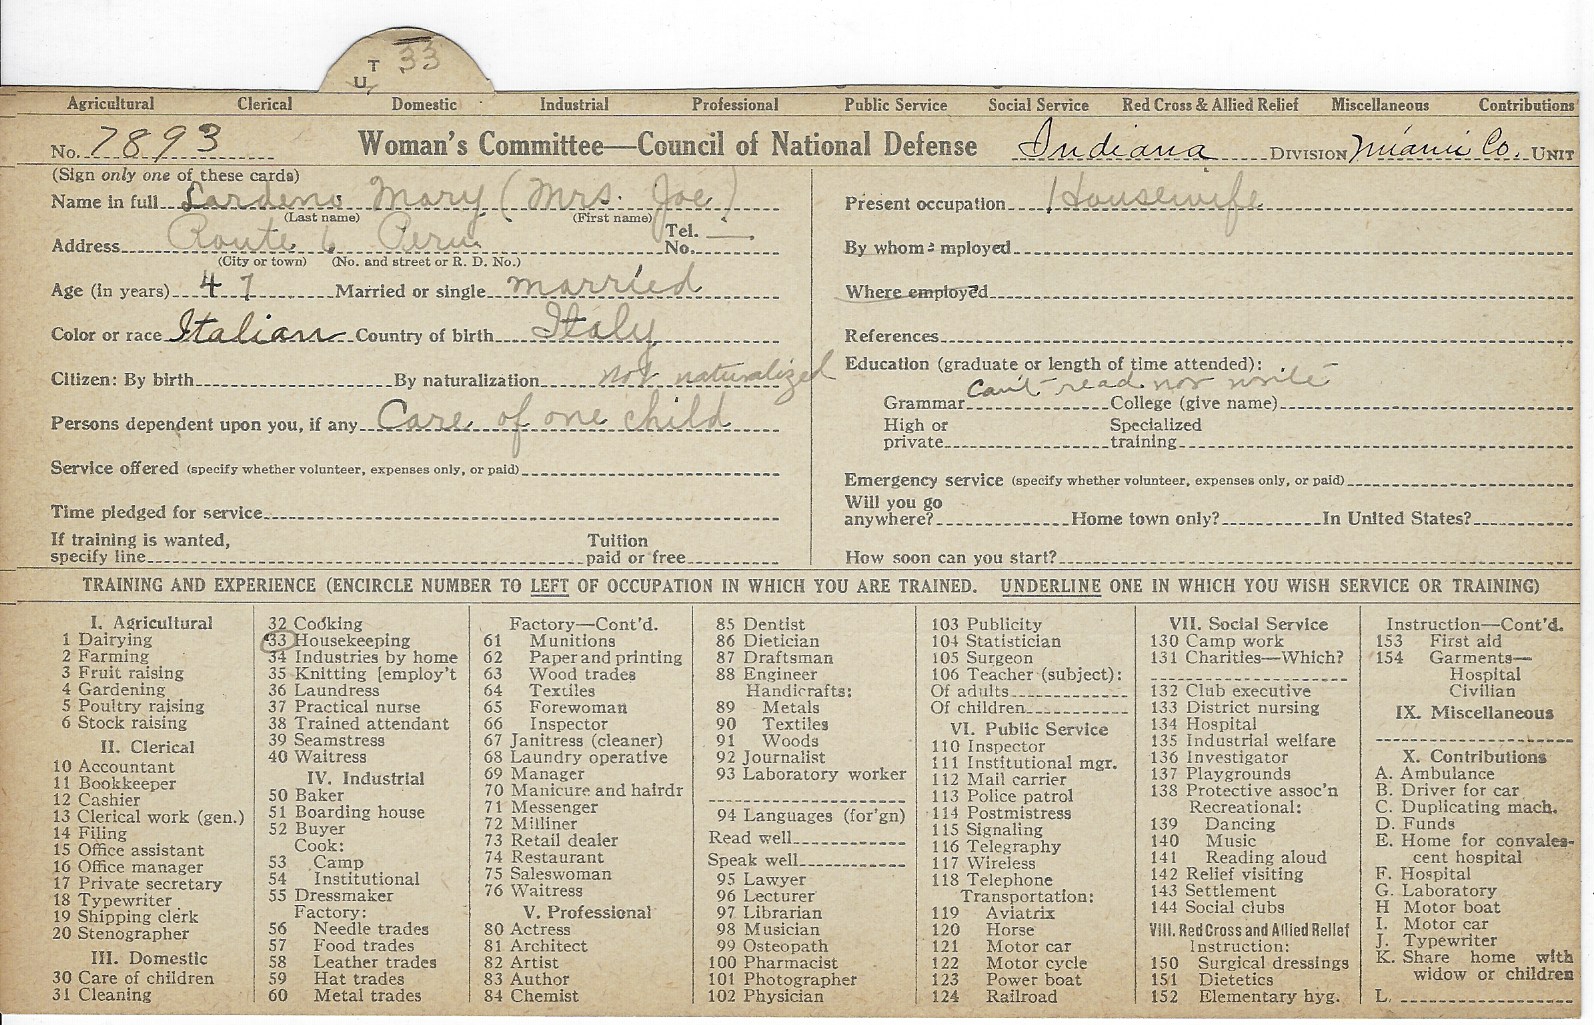 T 33
U
Agricultural Clerical Domestic Industrial Professional Public Service Social Service Red Cross & Allied Relief Miscellaneous Contributions
No. 7893 Woman's Committee—Council of National Defense Indiana DIVISION Miami Co. UNIT
(Sign only one of these cards)
Name in full Lardeno Mary (Mrs. Joe)
(Last name) (First name)
Address Route 6 Peru Tel. No.
(City or town) (No. and street or R. D. No.)
Age (in years) 47 Married or single married
Color or race Italian Country of birth Italy
Citizen: By birth By naturalization not naturalized
Persons dependent upon you, if any Care of one child
Service offered (specify whether volunteer, expenses only, or paid)
Time pledged for service
If training is wanted, specify line Tuition paid or free
Present occupation Housewife
By whom employed
Where employed
References
Education (graduate or length of time attended):
Can't read nor write
Grammar College (give name)
High or private Specialized training
Emergency service (specify whether volunteer, expenses only, or paid)
Will you go anywhere? Home town only? In United States?
How soon can you start?
TRAINING AND EXPERIENCE (ENCIRCLE NUMBER TO LEFT OF OCCUPATION IN WHICH YOU ARE TRAINED. UNDERLINE ONE IN WHICH YOU WISH SERVICE OR TRAINING)
I. Agricultural
1 Dairying
2 Farming
3 Fruit raising
4 Gardening
5 Poultry raising
6 Stock raising
II. Clerical
10 Accountant
11 Bookkeeper
12 Cashier
13 Clerical work (gen.)
14 Filing
15 Office assistant
16 Office manager
17 Private secretary
18 Typewriter
19 Shipping clerk
20 Stenographer
III. Domestic
30 Care of children
31 Cleaning
32 Cooking
33 Housekeeping
34 Industries by home
35 Knitting [employ't
36 Laundress
37 Practical nurse
38 Trained attendant
39 Seamstress
40 Waitress
IV. Industrial
50 Baker
51 Boarding house
52 Buyer
Cook:
53 Camp
54 Institutional
55 Dressmaker
Factory:
56 Needle trades
57 Food trades
58 Leather trades
59 Hat trades
60 Metal trades
Factory—Cont'd.
61 Munitions
62 Paper and printing
63 Wood trades
64 Textiles
65 Forewoman
66 Inspector
67 Janitress (cleaner)
68 Laundry operative
69 Manager
70 Manicure and hairdr
71 Messenger
72 Milliner
73 Retail dealer
74 Restaurant
75 Saleswoman
76 Waitress
V. Professional
80 Actress
81 Architect
82 Artist
83 Author
84 Chemist
85 Dentist
86 Dietician
87 Draftsman
88 Engineer
Handicrafts:
89 Metals
90 Textiles
91 Woods
92 Journalist
93 Laboratory worker
94 Languages (for'gn)
Read well
Speak well
95 Lawyer
96 Lecturer
97 Librarian
98 Musician
99 Osteopath
100 Pharmacist
101 Photographer
102 Physician
103 Publicity
104 Statistician
105 Surgeon
106 Teacher (subject):
Of adults
Of children
VI. Public Service
110 Inspector
111 Institutional mgr.
112 Mail carrier
113 Police patrol
114 Postmistress
115 Signaling
116 Telegraphy
117 Wireless
118 Telephone
Transportation:
119 Aviatrix
120 Horse
121 Motor car
122 Motor cycle
123 Power boat
124 Railroad
VII. Social Service
130 Camp work
131 Charities—Which?
132 Club executive
133 District nursing
134 Hospital
135 Industrial welfare
136 Investigator
137 Playgrounds
138 Protective assoc'n
Recreational:
139 Dancing
140 Music
141 Reading aloud
142 Relief visiting
143 Settlement
144 Social clubs
VIII. Red Cross and Allied Relief
Instruction:
150 Surgical dressings
151 Dietetics
152 Elementary hyg.
Instruction—Cont'd.
153 First aid
154 Garments—
Hospital
Civilian
IX. Miscellaneous
X. Contributions
A. Ambulance
B. Driver for car
C. Duplicating mach.
D. Funds
E. Home for convales-
cent hospital
F. Hospital
G. Laboratory
H Motor boat
I. Motor car
J. Typewriter
K. Share home with
widow or children
L.